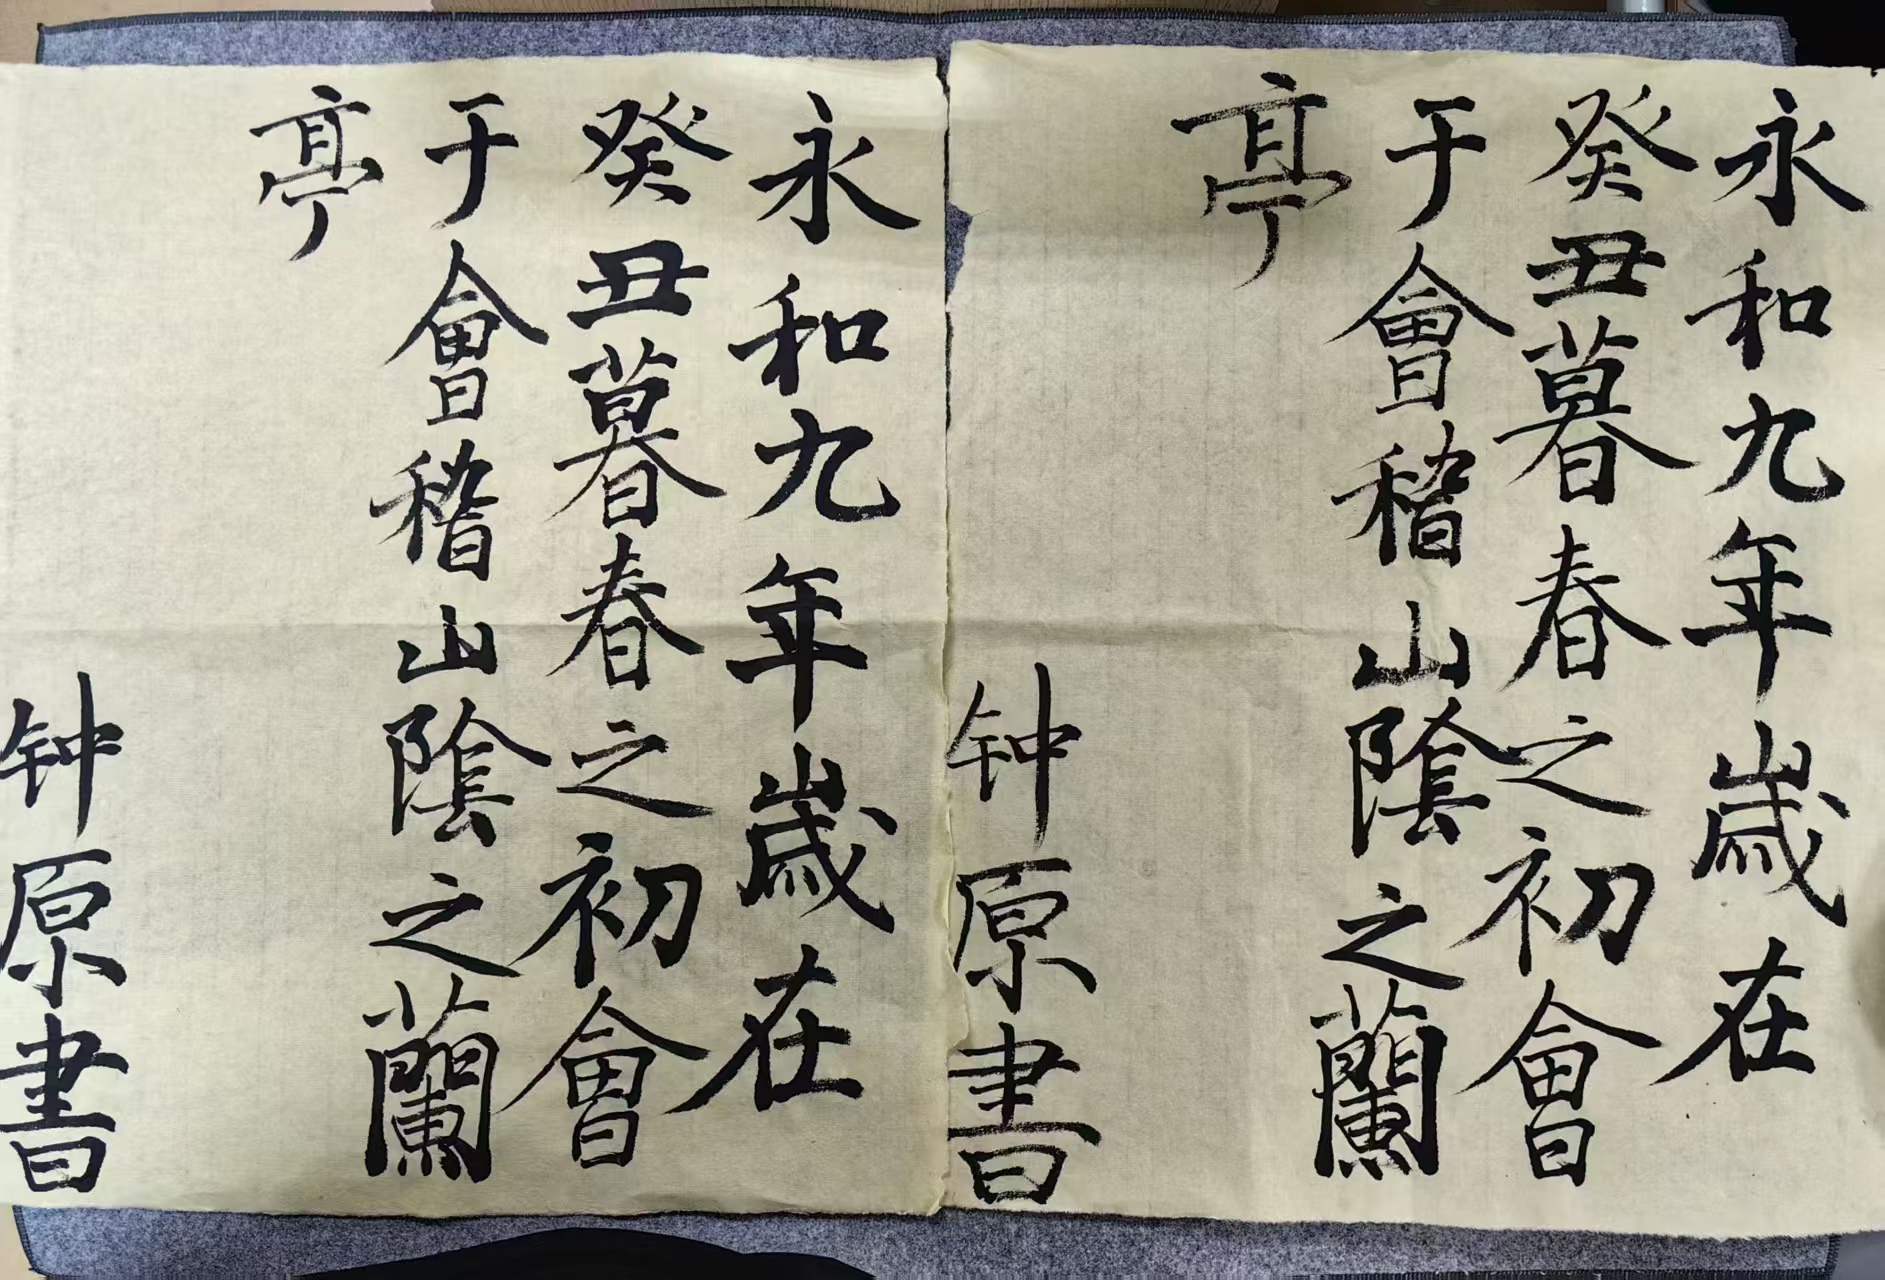 永和九年歲在
癸丑暮春之初會
于會稽山陰之蘭
亭
钟原書
永和九年歲在
癸丑暮春之初會
于會稽山陰之蘭
亭
钟原書